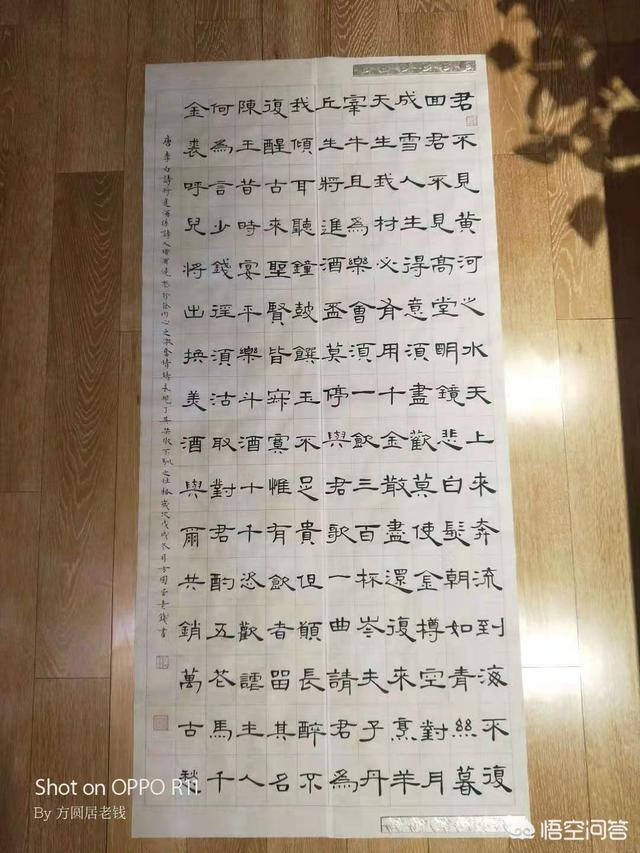 君不見黃河之水天上來奔流到海不復
回君不見高堂明鏡悲白髮朝如青絲暮
成雪人生得意須盡歡莫使金樽空對月
天生我材必有用千金散盡還復來烹羊
宰牛且為樂會須一飲三百杯岑夫子丹
丘生將進酒盃莫停與君歌一曲請君為
我傾耳聽鐘鼓饌玉不足貴但願長醉不
復醒古來聖賢皆寂寞惟有飲者留其名
陳王昔時宴平樂斗酒十千恣歡謔主人
何為言少錢徑須沽取對君酌五花馬千
金裘呼兒將出換美酒與爾共銷萬古愁
唐李白詩將進酒
Shot on OPPO R11
By 方圆居老钱
悟空问答